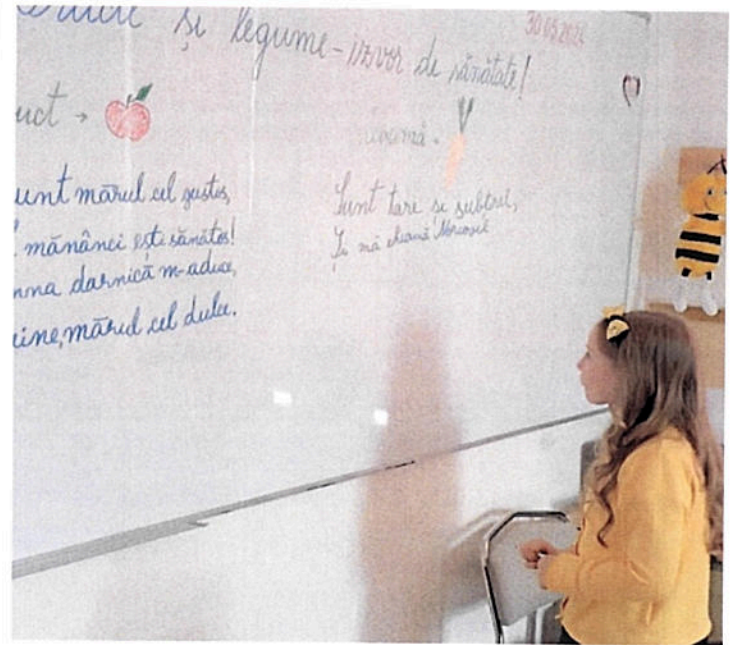 și legume-izvor de sănătate!
30.05.2024
uct →
legumă -
unt mărul cel gustos,
mănânci ești sănătos!
mna darnică m-aduce,
ine, mărul cel dulce.
Sunt tare și subțirel,
Și mă cheamă Morcovel